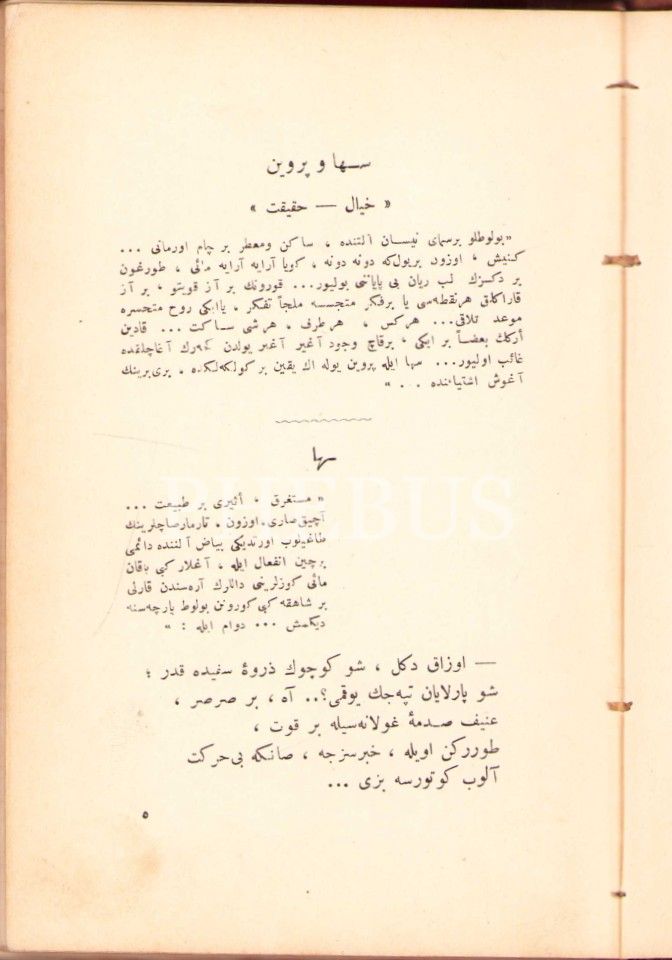 سها و پروین
« خیال — حقیقت »
« بولوطلو برسمای نیسان آلتنده ، ساکن ومعطر بر چام اورمانی ...
کنیش ، اوزون بریولکه دونه دونه ، کویا آرایه آرایه مائی ، طورغون
بر دکزک لب ریان بی پایاننی بولیور... قورونك بر آز قویتو ، بر آز
قاراکلق هرنقطه‌سی یا برفکر متجسسه ملجأ تفکر ، یاایکی روح متحسره
موعد تلاقی... هرکس ، هرطرف ، هرشی ساکت ... قادین
أرکك بعضاً بر ایکی ، برقاچ وجود آغیر آغیر یولدن کچه‌رك آغاچلقده
غائب اولیور... سها ایله پروین یوله اك یقین بر کولکه‌لکده ، بری‌برینك
آغوش اشتیاقنده ... »
سها
« مستغرق ، أثیری بر طبیعت ...
آچیق صاری، اوزون ، تارمار صاچلرینك
طاغیلوب اورتدیکی بیاض آلننده دائمی
برچین انفعال ایله ، آغلار کبی باقان
مائی کوزلرینی داللرك آره‌سندن قارلی
بر شاهقه کبی کورونن بولوط پارچه‌سنه
دیکمش ... دوام ایله : »
— اوزاق دکل ، شو کوچوك ذروهٔ سفیده قدر ؛
شو پارلایان تپه‌جك یوقمی؟.. آه ، بر صرصر ،
عنیف صدمهٔ غولانه‌سیله بر قوت ،
طوررکن اویله ، خبرسزجه ، صانکه بی‌حرکت
آلوب کوتورسه بزی ...
٥
PHEBUS